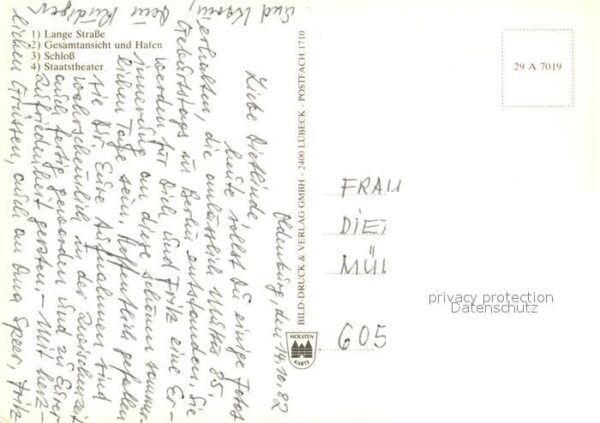 1) Lange Straße
2) Gesamtansicht und Hafen
3) Schloß
4) Staatstheater
Oldenburg, den 14.10.82
Liebe Dietlinde,
heute sollst Du einige Fotos
erhalten, die anlässlich Mutters 85
Geburtstags in Berlin entstanden. Sie
werden für Dich und Fritz eine Er-
innerung an diese schönen sommer-
lichen Tage sein. Hoffentlich gefallen
sie Dir. Eure Aufnahmen sind
wahrscheinlich in der Zwischenzeit
auch fertig geworden und zu Eurer
Zufriedenheit geraten. - Mit herz-
lichen Grüssen, auch an Oma Speer, Fritz
und Karin, Dein Rüdiger
BILD-DRUCK & VERLAG GMBH - 2400 LÜBECK - POSTFACH 1710
HOLSTEN
KARTE
29 A 7019
FRAU
DIET
MÜL
605
privacy protection
Datenschutz